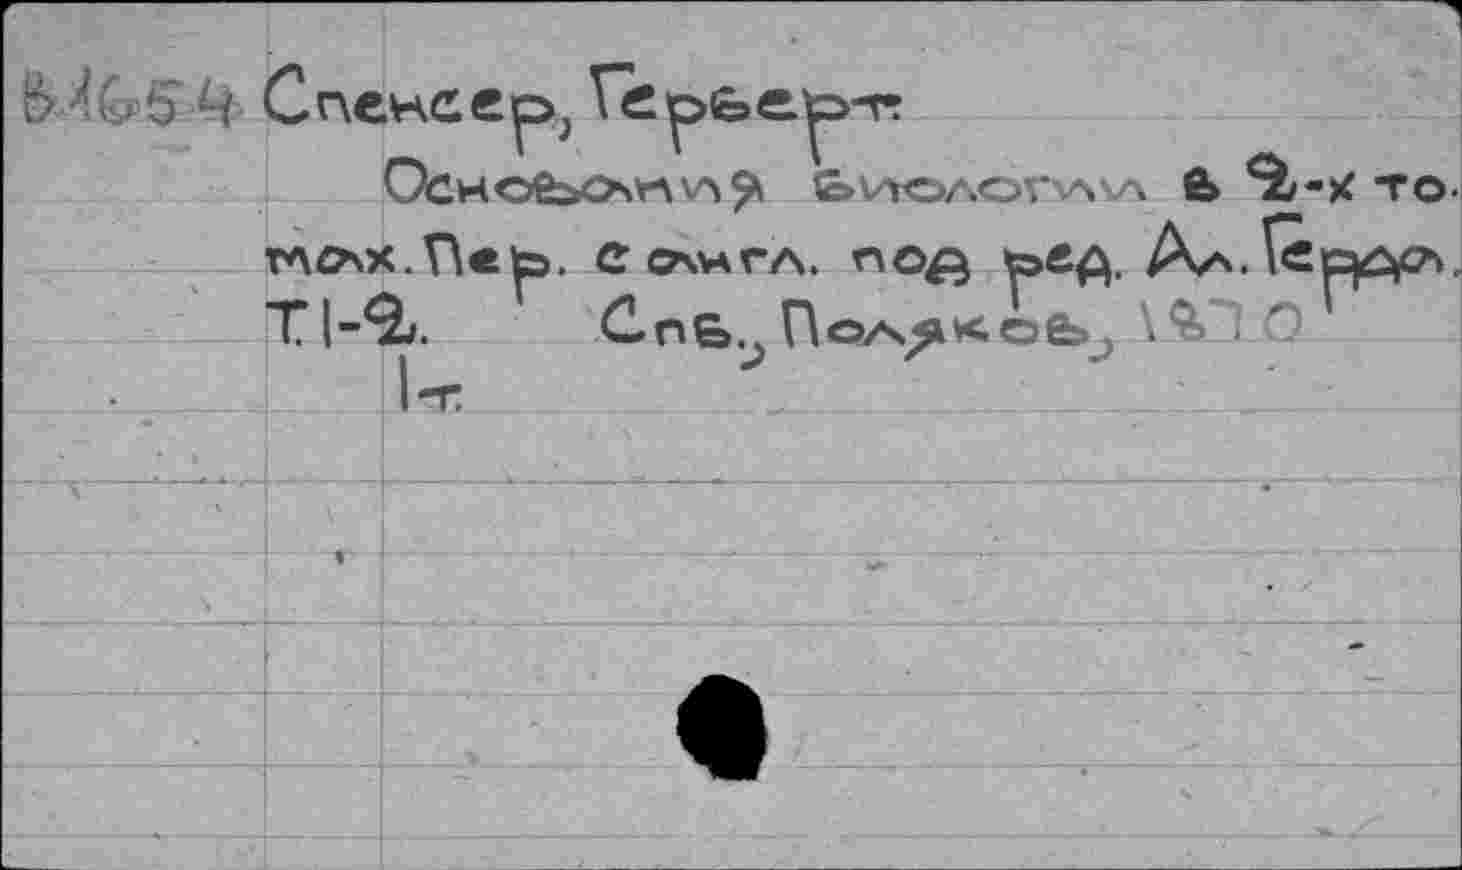 В1654 Спенсер, Герберт.
Основания биологии в 2-х то-
мах. Пер. с англ. под ред. Ал. Герда.
Т.1-2. Спб., Поляков, 1870
1т.